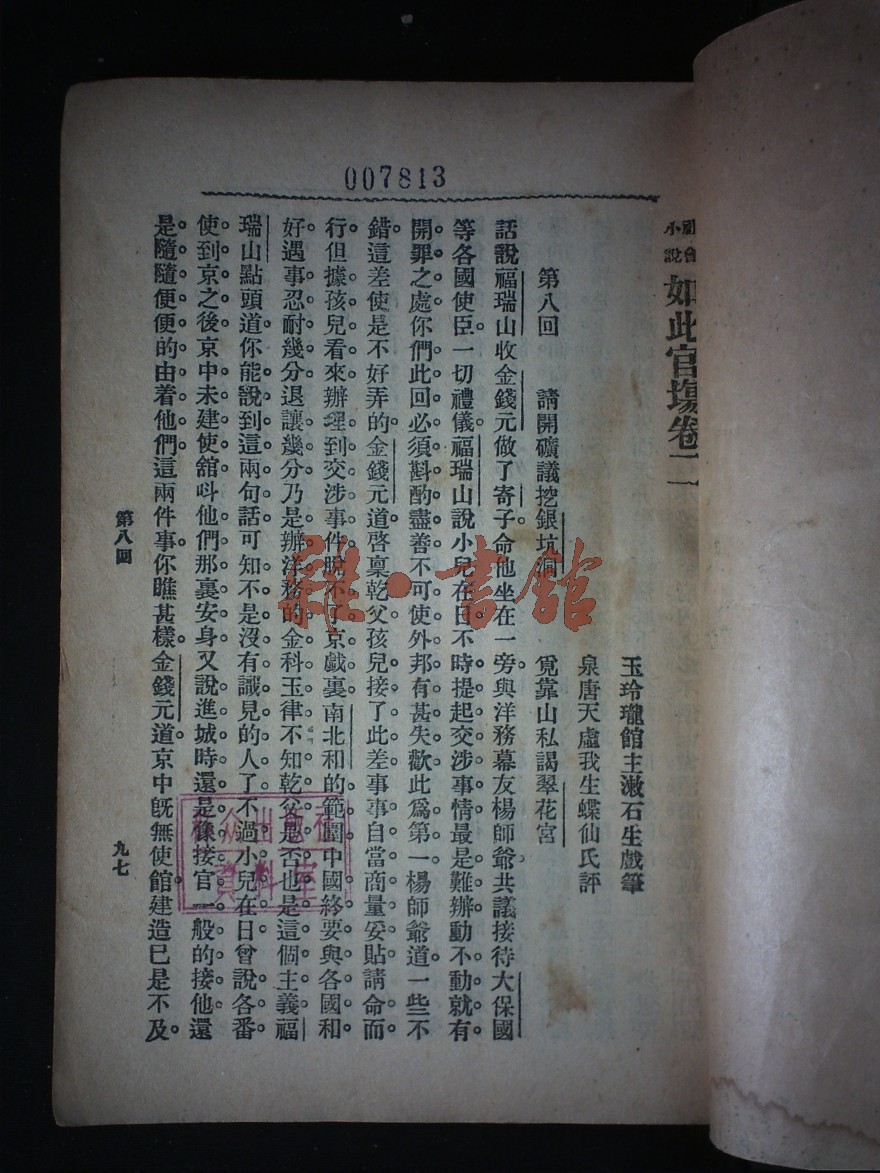 007813
社會小說 如此官塲卷二
玉玲瓏館主漱石生戲筆
泉唐天虛我生蝶仙氏評
第八回 請開礦議挖銀坑洞 覓靠山私謁翠花宮
話說福瑞山收金錢元做了寄子。命他坐在一旁。與洋務幕友楊師爺共議接待大保國
等各國使臣。一切禮儀。福瑞山說小兒在日。不時提起交涉事情。最是難辦。動不動就有
開罪之處。你們此回必須斟酌盡善。不可使外邦有甚失歡。此爲第一。楊師爺道。一些不
錯。這差使是不好弄的。金錢元道。啓稟乾父。孩兒接了此差。事事自當商量妥貼。請命而
行。但據孩兒看來。辦理到交涉事件。脫不了京戲裏南北和的範圍。中國終要與各國和
好。遇事忍耐幾分。退讓幾分。乃是辦洋務的金科玉律。不知乾父是否也是這個主義。福
瑞山點頭道。你能說到這兩句話。可知不是沒有識見的人了。不過小兒在日曾說。各番
使到京之後。京中未建使舘。呌他們那裏安身。又說進城時還是像接官一般的接他。還
是隨隨便便的由着他們。這兩件事你瞧甚樣。金錢元道。京中旣無使館。建造已是不及。
第八回
九七
雜·書館